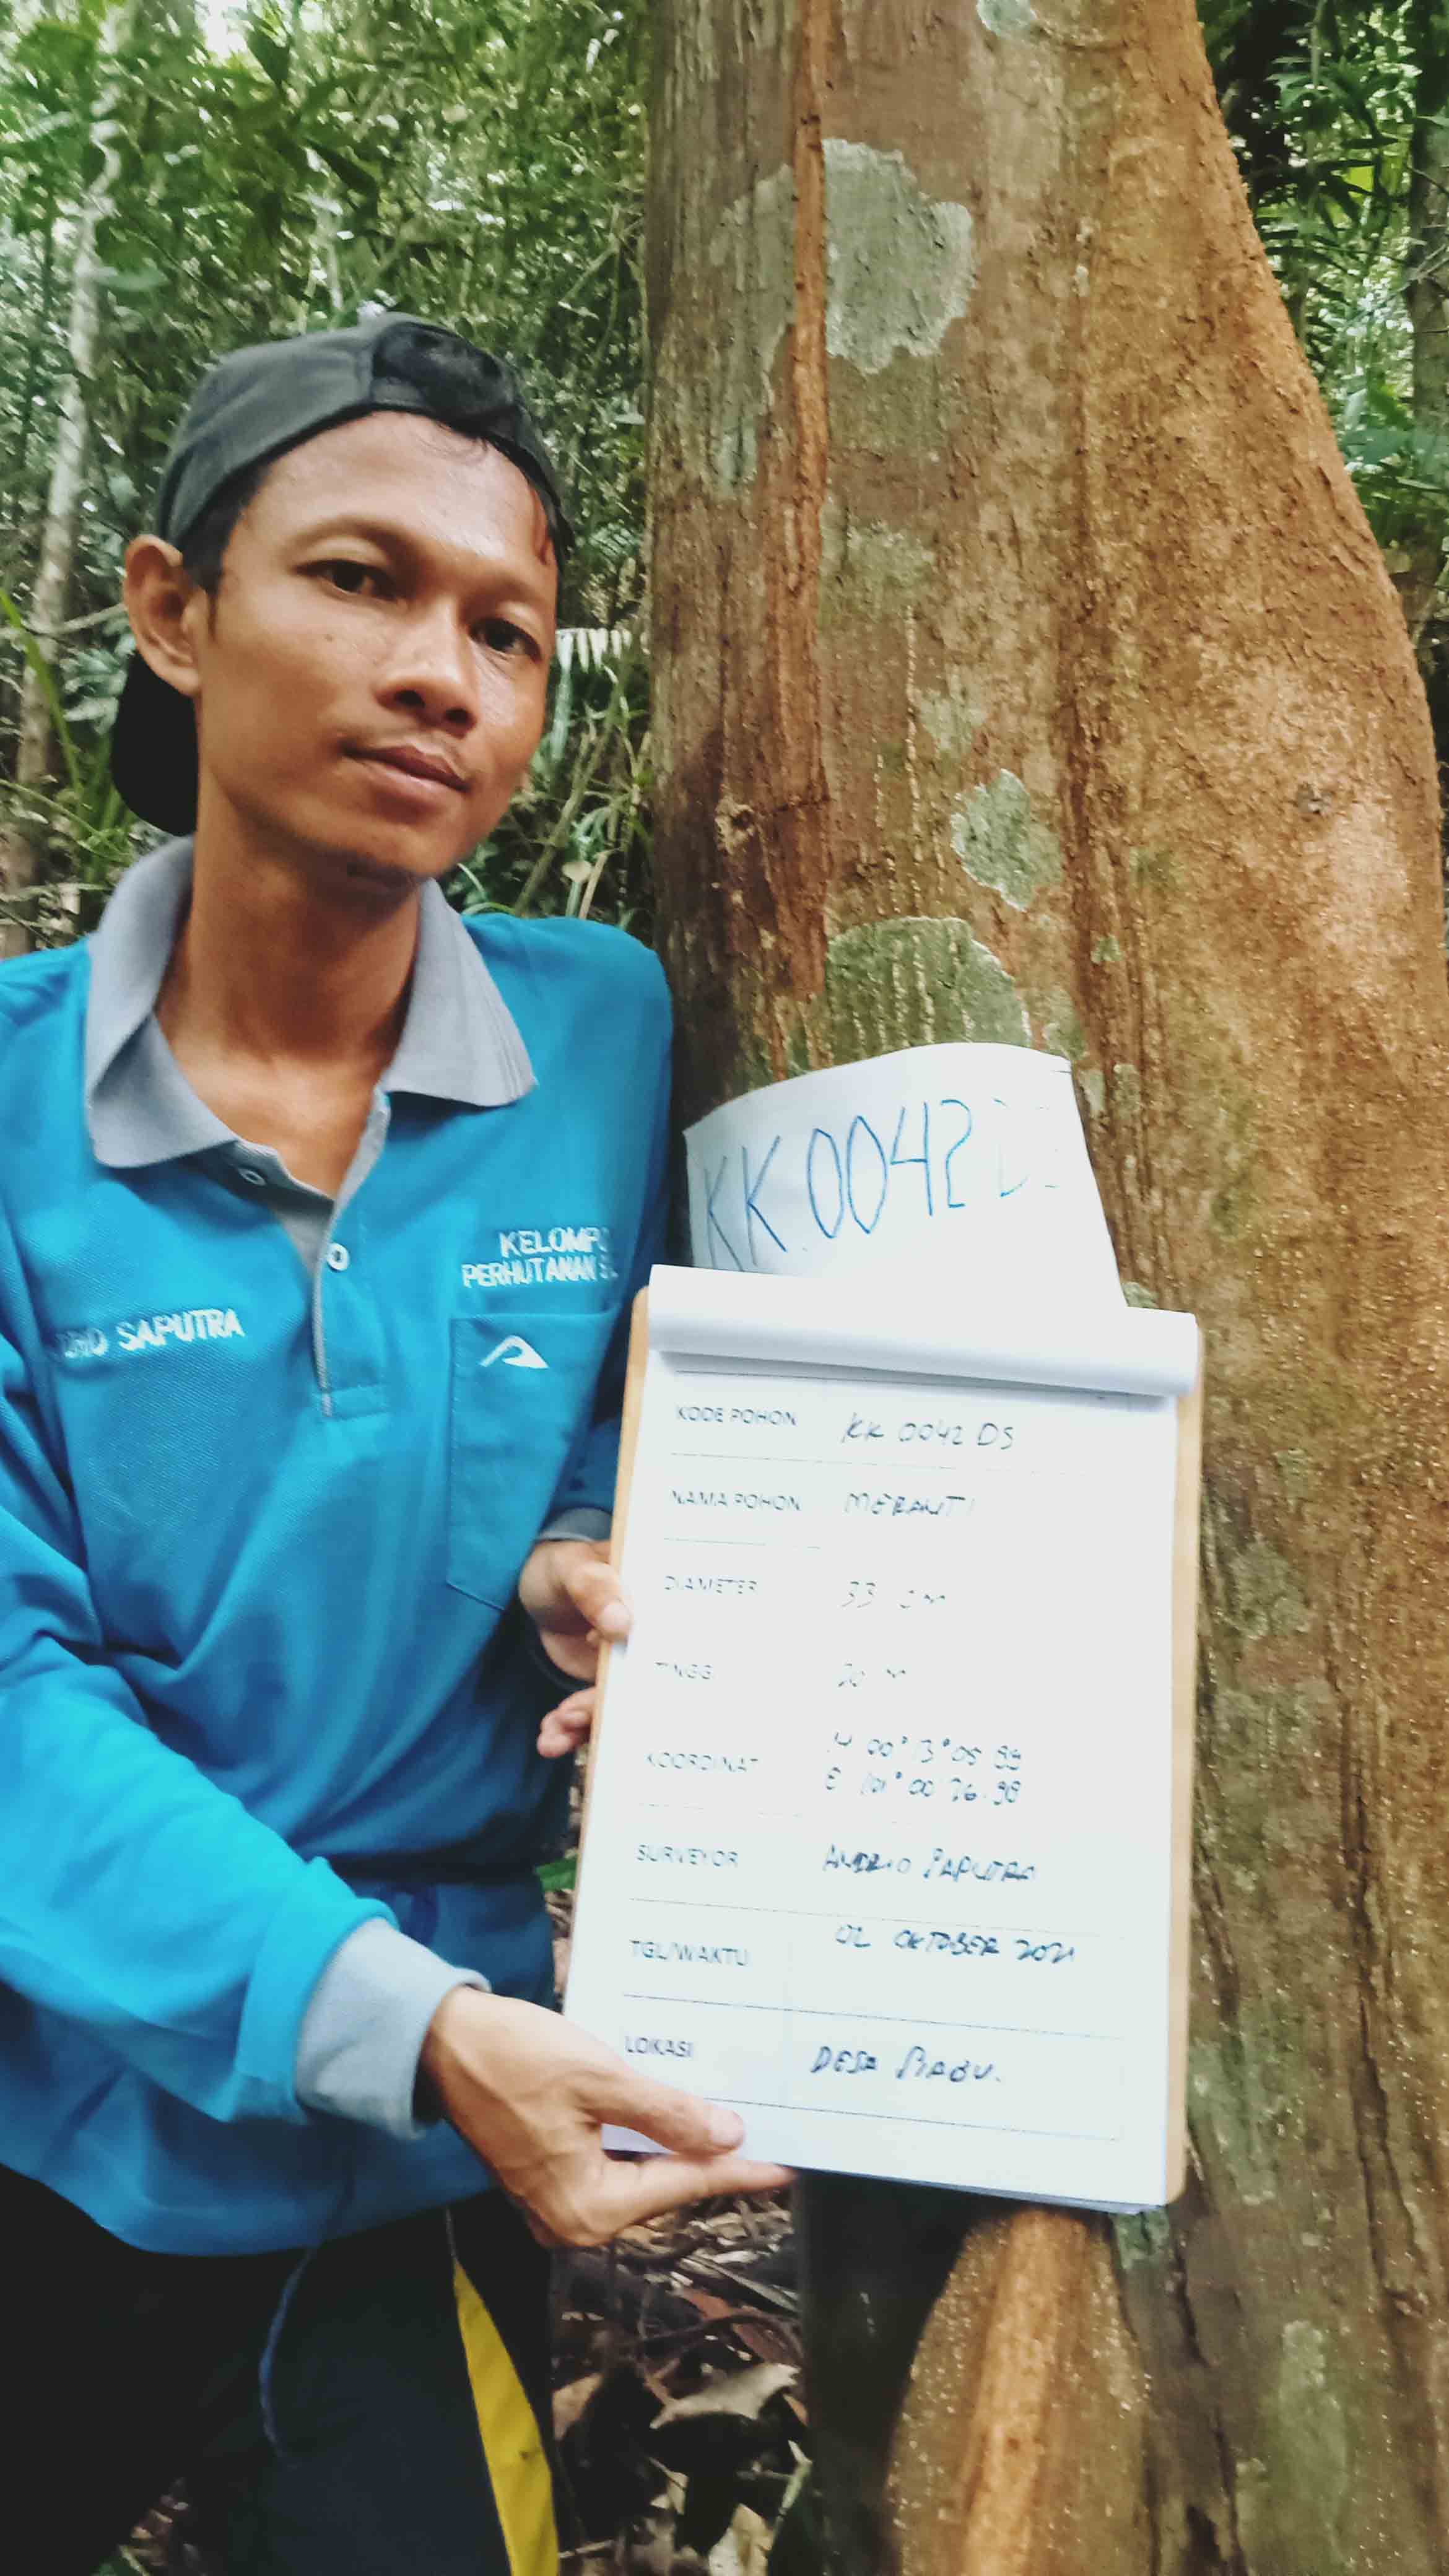 KK.0042 D
KELOMPO
PERHUTANAN S
SAPUTRA
KODE POHON KK 0042 DS
NAMA POHON MERANTI
DIAMETER 33 cm
TINGGI 20 m
N 00° 13° 05 99
KOORDINAT
E 101° 00' 26.98
SURVEYOR ANDRIO SAPUTRA
TGL/WAKTU 02 OKTOBER 2021
LOKASI DESA